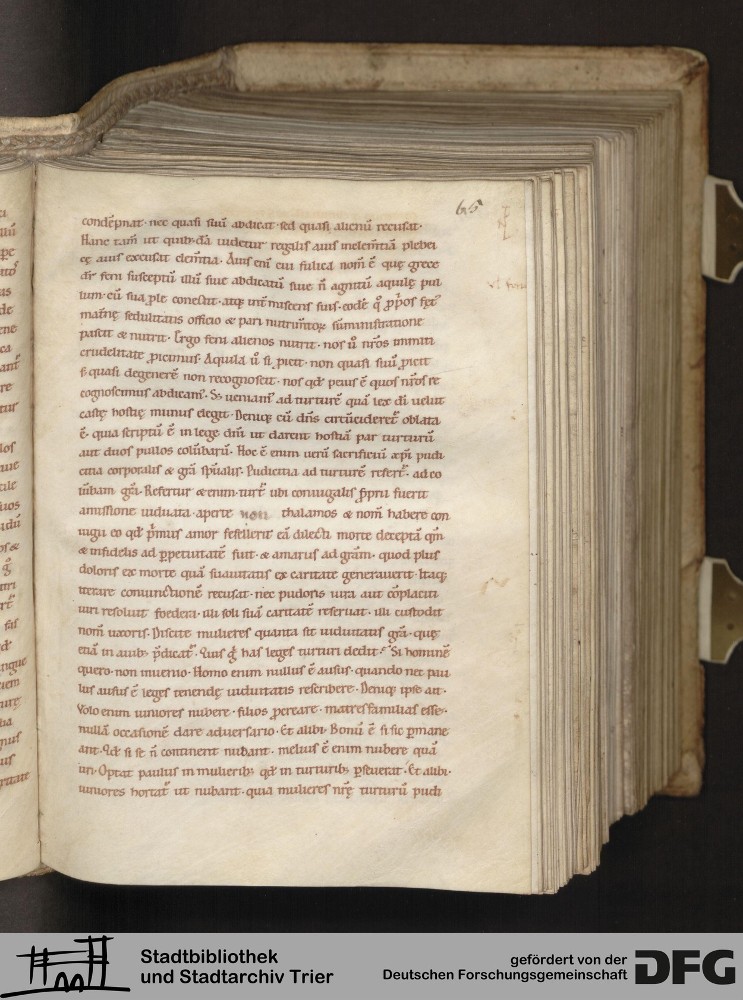 65
condēpnat · nec quasi suū abdicat · sed quasi alienū recusat ·
Hanc tam̄ ut quibdā uidetur regalis auis inclem̄tiā plebei
ę auis excusat clem̄tia · Auis eni cui fulica nom̄ ē quę grece
dr̄ feni susceptū illū siue abdicatū siue n̄ agnitū aquilę pul
lum · cū sua ple conectit · atq; int̄miscens suis · eode q̄ ꝓprios fęt
matn̄ę sedulitatis officio & pari nutrim̄toꝝ sūministratione
pascit & nutrit · Ergo feni alienos nutrit · nos ū nr̄os inmiti
crudelitate ꝓicimus · Aquila ū si ꝓicit · non quasi suū ꝓicit
s; quasi degenerē non recognoscit · nos qđ peius ē quos nr̄os re
cognoscimus abdicam̄ · S; ueniam̄ ad turturē quā lex dī uelut
castę hostię munus elegit · Deniq; cū dn̄s circūcideret oblata
ē · quia scriptū ē in lege dn̄i ut darent hostiā par turturū
aut duos pullos colūbarū · Hoc ē enim uerū sacrificiū xp̄i pudi
citia corporalis & gr̄a sp̄ualis · Pudicitia ad turturē refert · ad co
lūbam gr̄a · Refertur & enim turt ubi coniugalis ꝓprii fuerit
amissione uiduata · aperte non thalamos & nom̄ habere con
iugii eo qđ p̄mus amor fefellerit eā dilecti morte deceptā qm̄
& infidelis ad ꝑpetuitatē fuit · & amarus ad gr̄am · quod plus
doloris ex morte quā suauitatis ex caritate generauerit · Itaq;
iterare coniunctionē recusat · nec pudoris iura aut cōplaciti
uiri resoluit foedera · illi soli suā caritatē reseruat · illi custodit
nom̄ uxoris · Discite mulieres quanta sit uiduitatis gr̄a · quę
etiā in auib; p̄dicat · Quis g̊ has leges turturi dedit · Si hominē
quero · non inuenio · Homo enim nullus ē ausus · quando nec pau
lus ausus ē leges tenendę uiduitatis rescribere · Deniq; ipse ait ·
Volo enim iuniores nubere · filios ꝓcreare · matres familias esse ·
nullā occasionē dare aduersario · Et alibi · Bonū ē si sic ꝑmane
ant · Qđ si se n̄ continent nubant · melius ē enim nubere quā
uri · Optat paulus in mulierib; qđ in turturib; ꝑseuerat · Et alibi ·
iuniores hortat ut nubant · quia mulieres nr̄ę turturū pudi
Stadtbibliothek
und Stadtarchiv Trier
gefördert von der
Deutschen Forschungsgemeinschaft
DFG